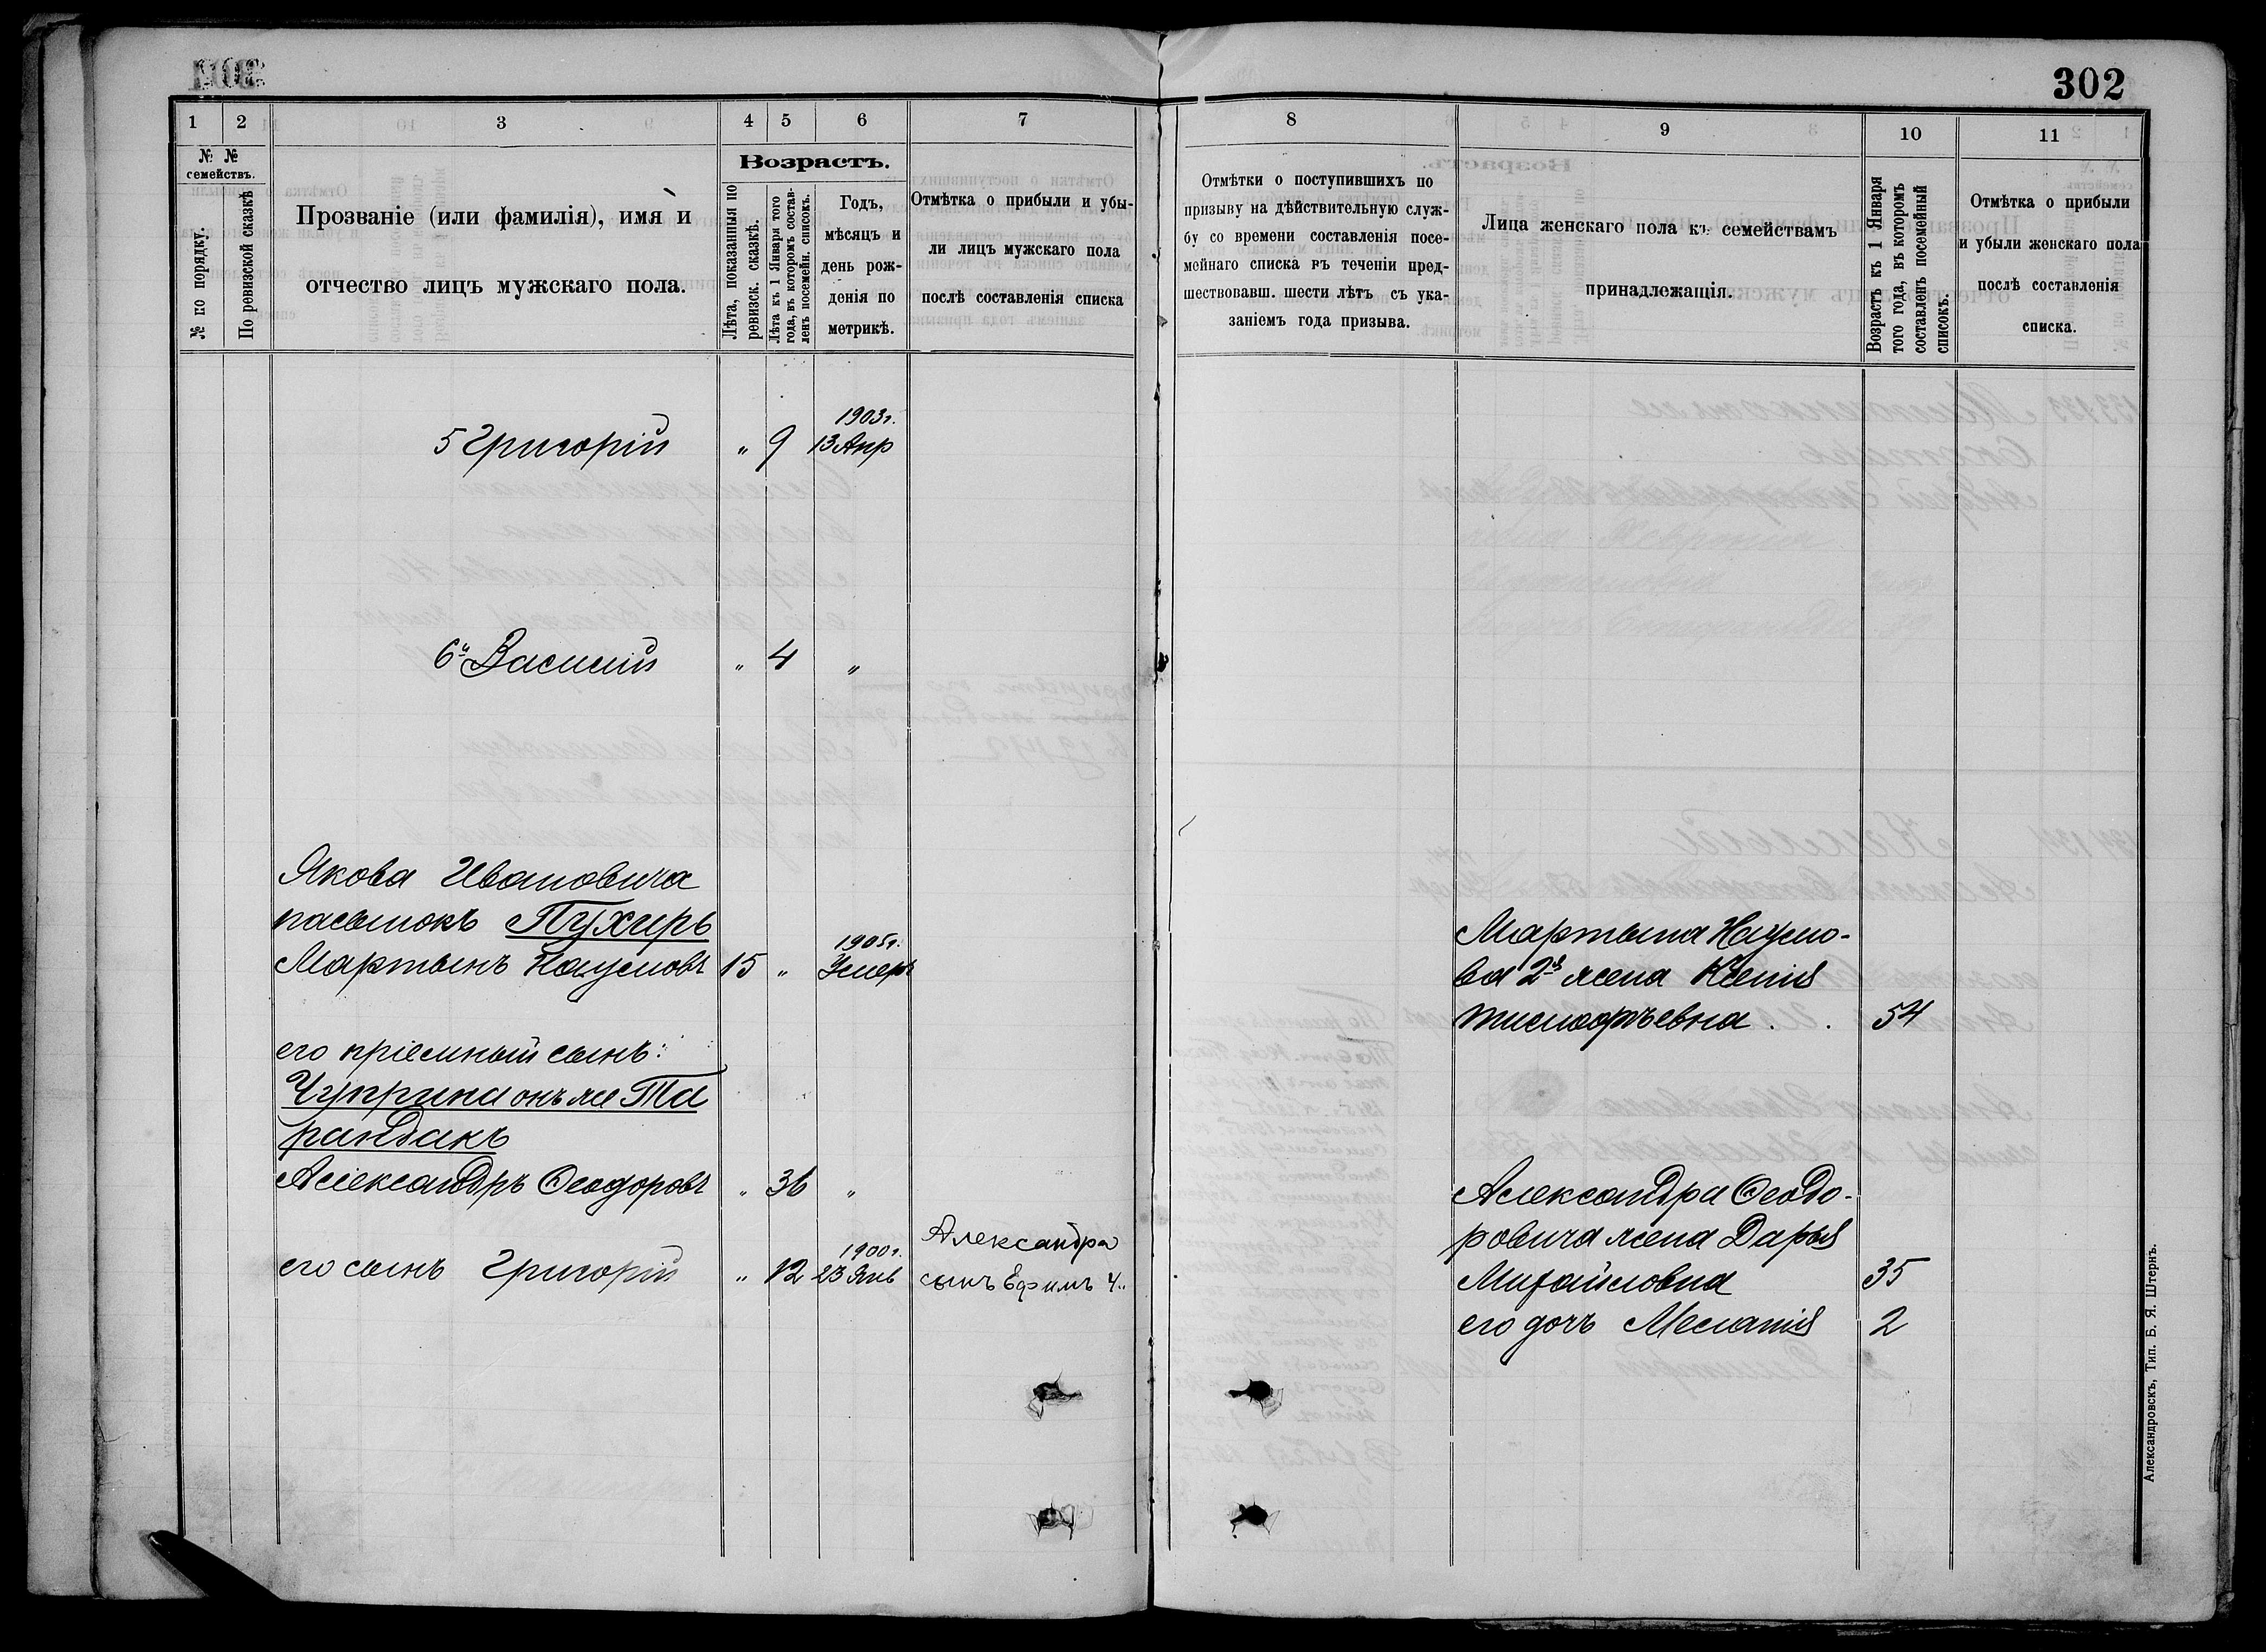 302
1 2 3 4 5 6 7
№ №
семействъ.
№ по порядку.
По ревизской сказкѣ
Прозваніе (или фамилія), имя и
отчество лицъ мужскаго пола.
Возрастъ.
Лѣта, показанныя по
ревизск. сказкѣ.
Лѣта къ 1 Января того
года, въ которомъ состав-
ленъ посемейн. списокъ.
Годъ,
мѣсяцъ и
день рож-
денія по
метрикѣ.
Отмѣтка о прибыли и убы-
ли лицъ мужскаго пола
послѣ составленія списка
5 Григорій „ 9 1903г.
13 Апр
6й Василій „ 4 „
Якова Ивановича
пасынокъ Пухирь
Мартынъ Наумовъ 15 „ 1905г.
Умеръ
его пріемный сынъ:
Чуприна онъ же Та
рандакъ
Александръ Ѳеодоровъ „ 36 „
его сынъ Григорій „ 12 1900г.
23 Янв
Александра
сынъ Ефимъ 4„
8 9 10 11
Отмѣтки о поступившихъ по
призыву на дѣйствительную служ-
бу со времени составленія посе-
мейнаго списка въ теченіи пред-
шествовавш. шести лѣтъ съ ука-
заніемъ года призыва.
Лица женскаго пола къ семействамъ
принадлежащія.
Возрастъ къ 1 Января
того года, въ которомъ
составленъ посемейный
списокъ.
Отмѣтка о прибыли
и убыли женскаго пола
послѣ составленія
списка.
Мартына Наумо-
ва 2я жена Ксенія
Тимофѣевна . . 54
Александра Ѳеодо-
ровича жена Дарья
Михайловна 35
его дочь Меланія 2
Александровскъ, Тип. Б. Я. Штернъ.